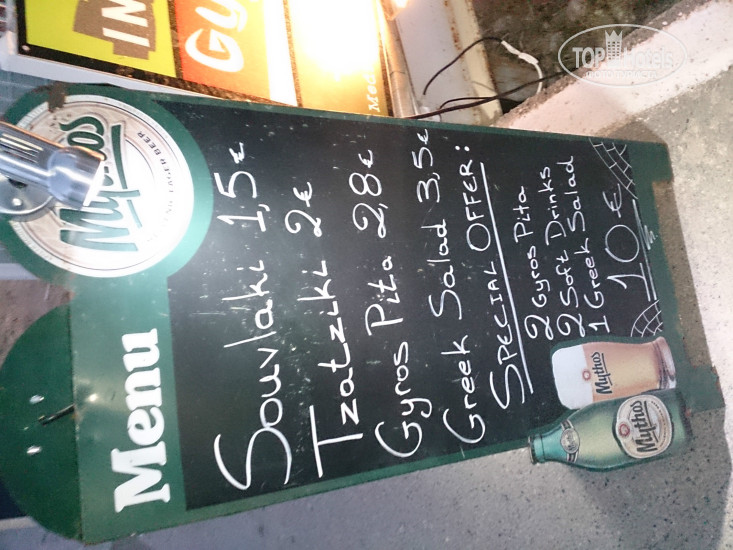 Mythos
LAGER BEER
Menu
Souvlaki 1,5€
Tzatziki 2€
Gyros Pita 2,8€
Greek Salad 3,5€
SPECIAL OFFER:
2 Gyros Pita
2 Soft Drinks
1 Greek Salad
10€
Mythos
Mythos
IN
GY
TOP Hotels